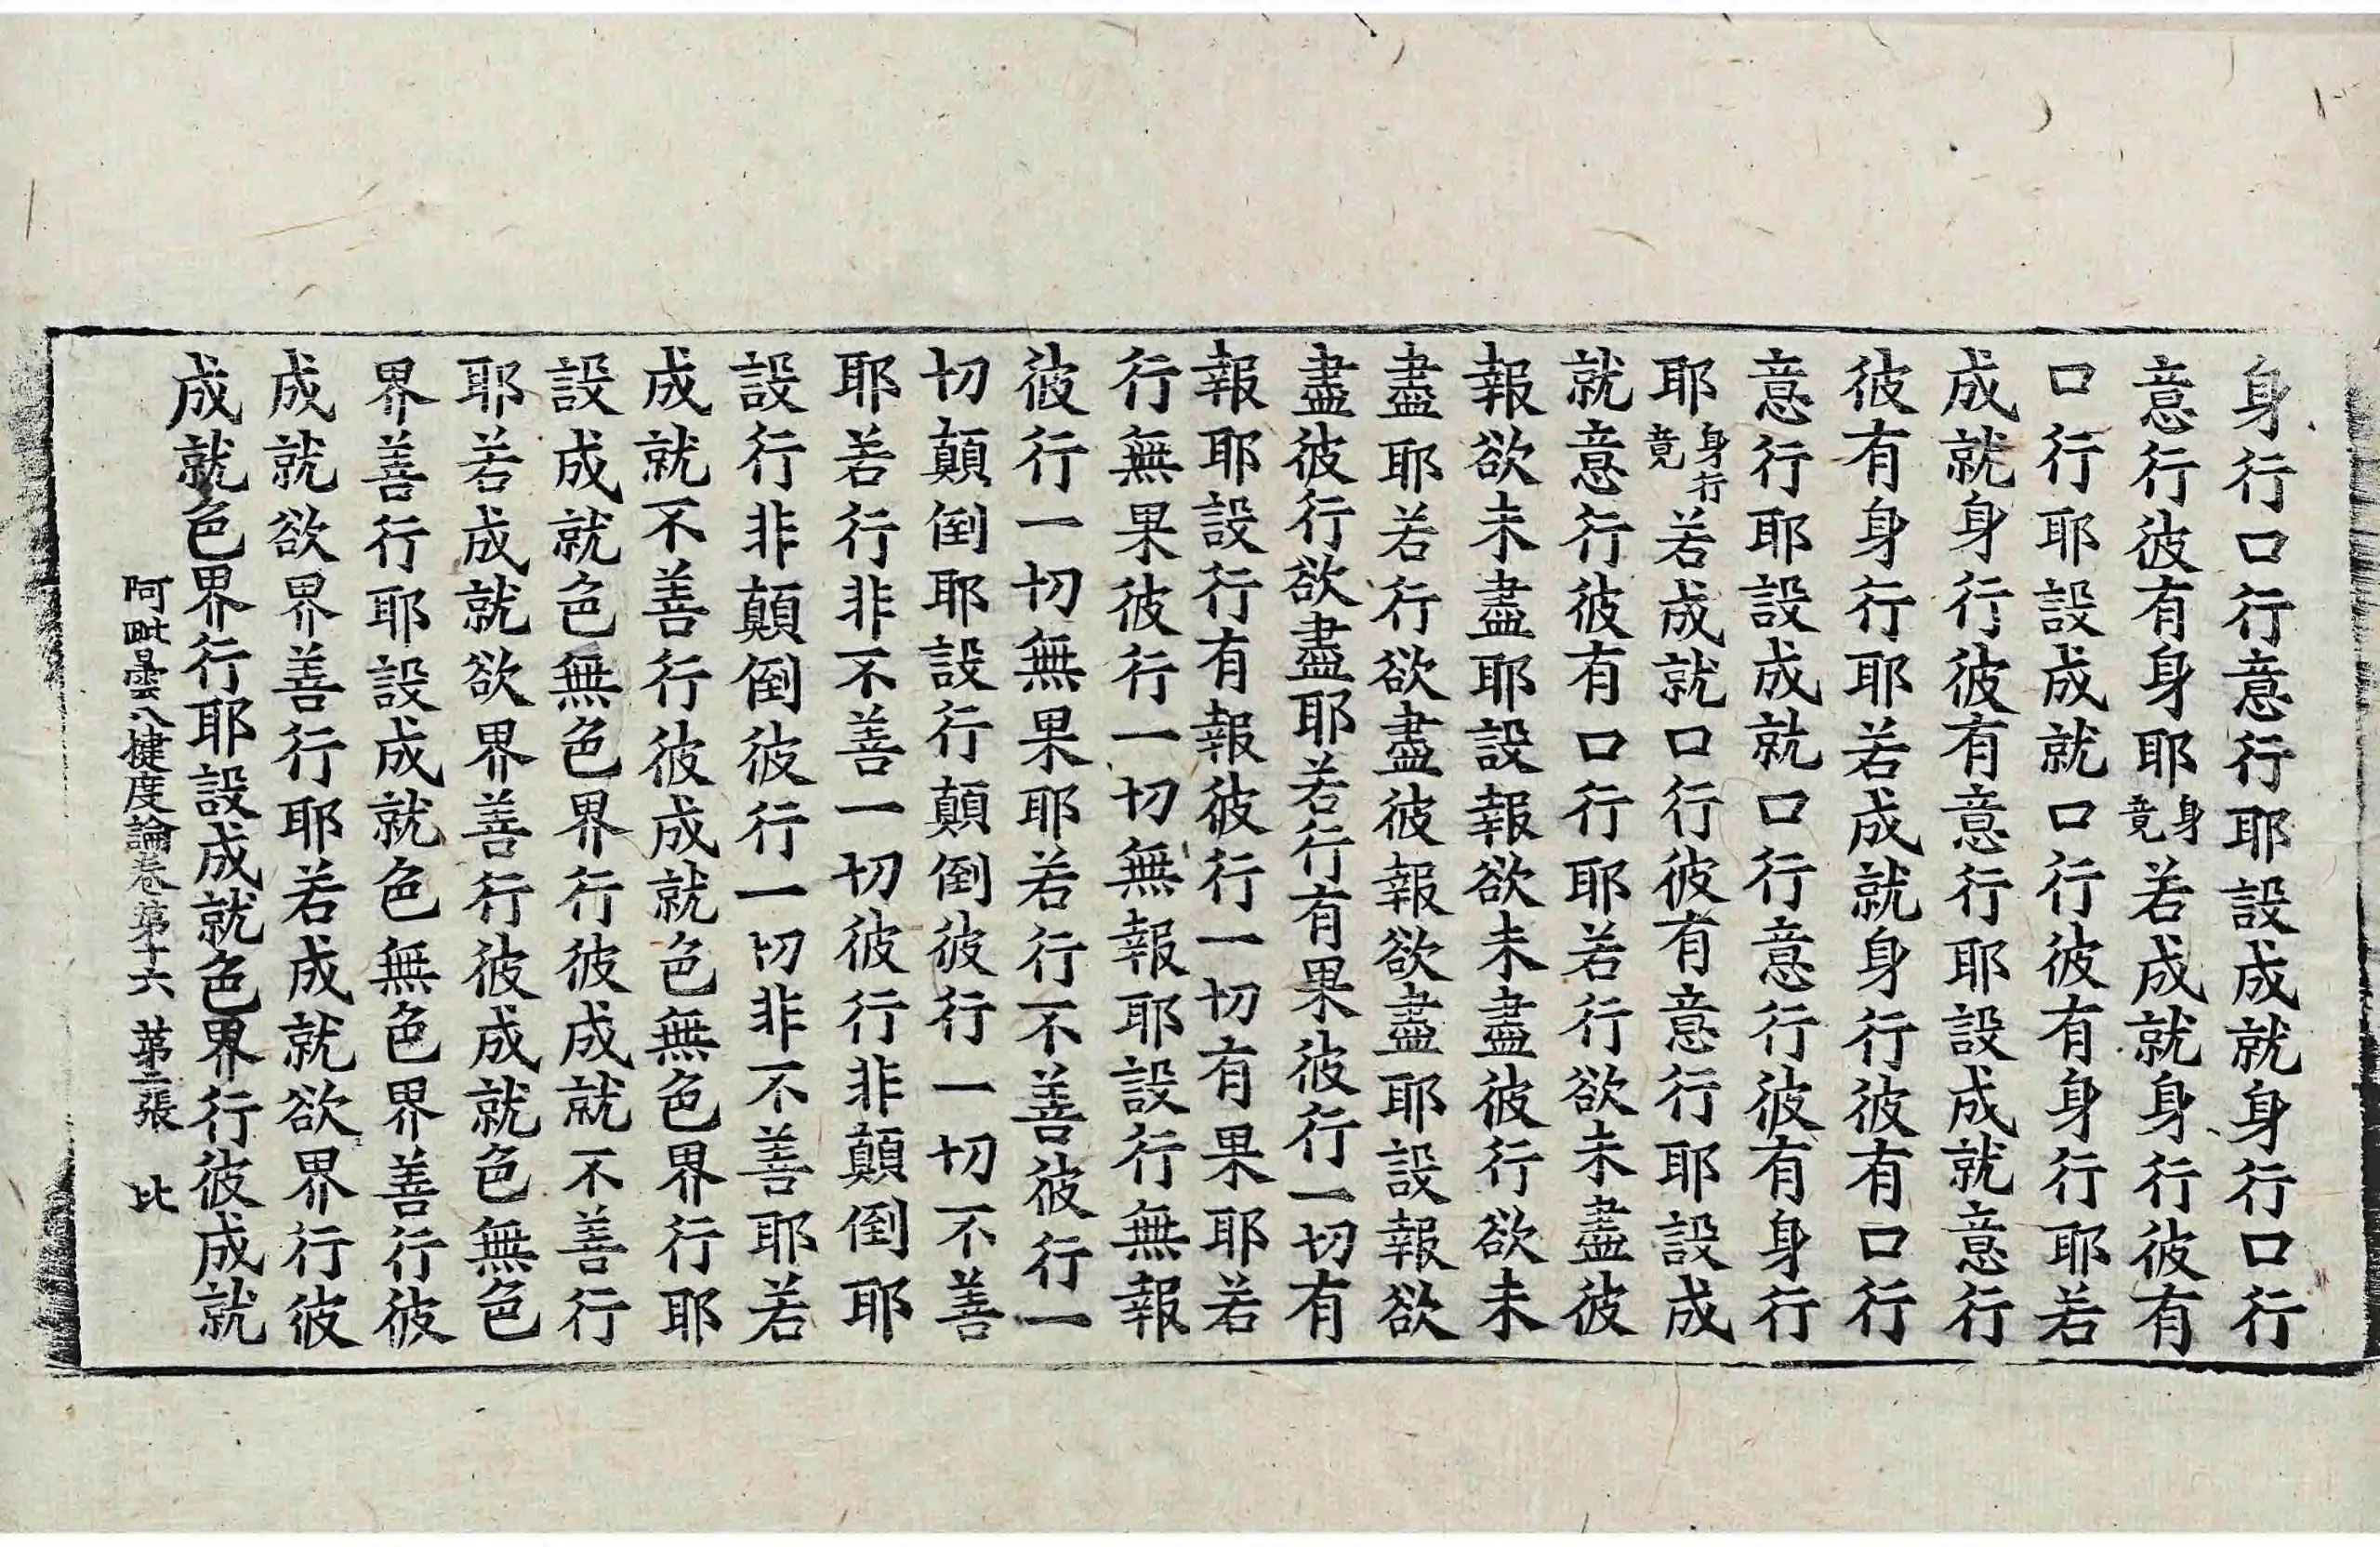 身行口行意行耶設成就身行口行
意行彼有身耶身竟若成就身行彼有
口行耶設成就口行彼有身行耶若
成就身行彼有意行耶設成就意行
彼有身行耶若成就身行彼有口行
意行耶設成就口行意行彼有身行
耶身行竟若成就口行彼有意行耶設成
就意行彼有口行耶若行欲未盡彼
報欲未盡耶設報欲未盡彼行欲未
盡耶若行欲盡彼報欲盡耶設報欲
盡彼行欲盡耶若行有果彼行一切有
報耶設行有報彼行一切有果耶若
行無果彼行一切無報耶設行無報
彼行一切無果耶若行不善彼行一
切顛倒耶設行顛倒彼行一切不善
耶若行非不善一切彼行非顛倒耶
設行非顛倒彼行一切非不善耶若
成就不善行彼成就色無色界行耶
設成就色無色界行彼成就不善行
耶若成就欲界善行彼成就色無色
界善行耶設成就色無色界善行彼
成就欲界善行耶若成就欲界行彼
成就色界行耶設成就色界行彼成就
阿毗曇八揵度論卷第十六 第二張 比